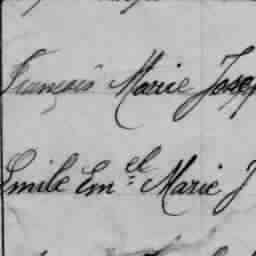 François Marie Josep
Emile Em.el Marie J